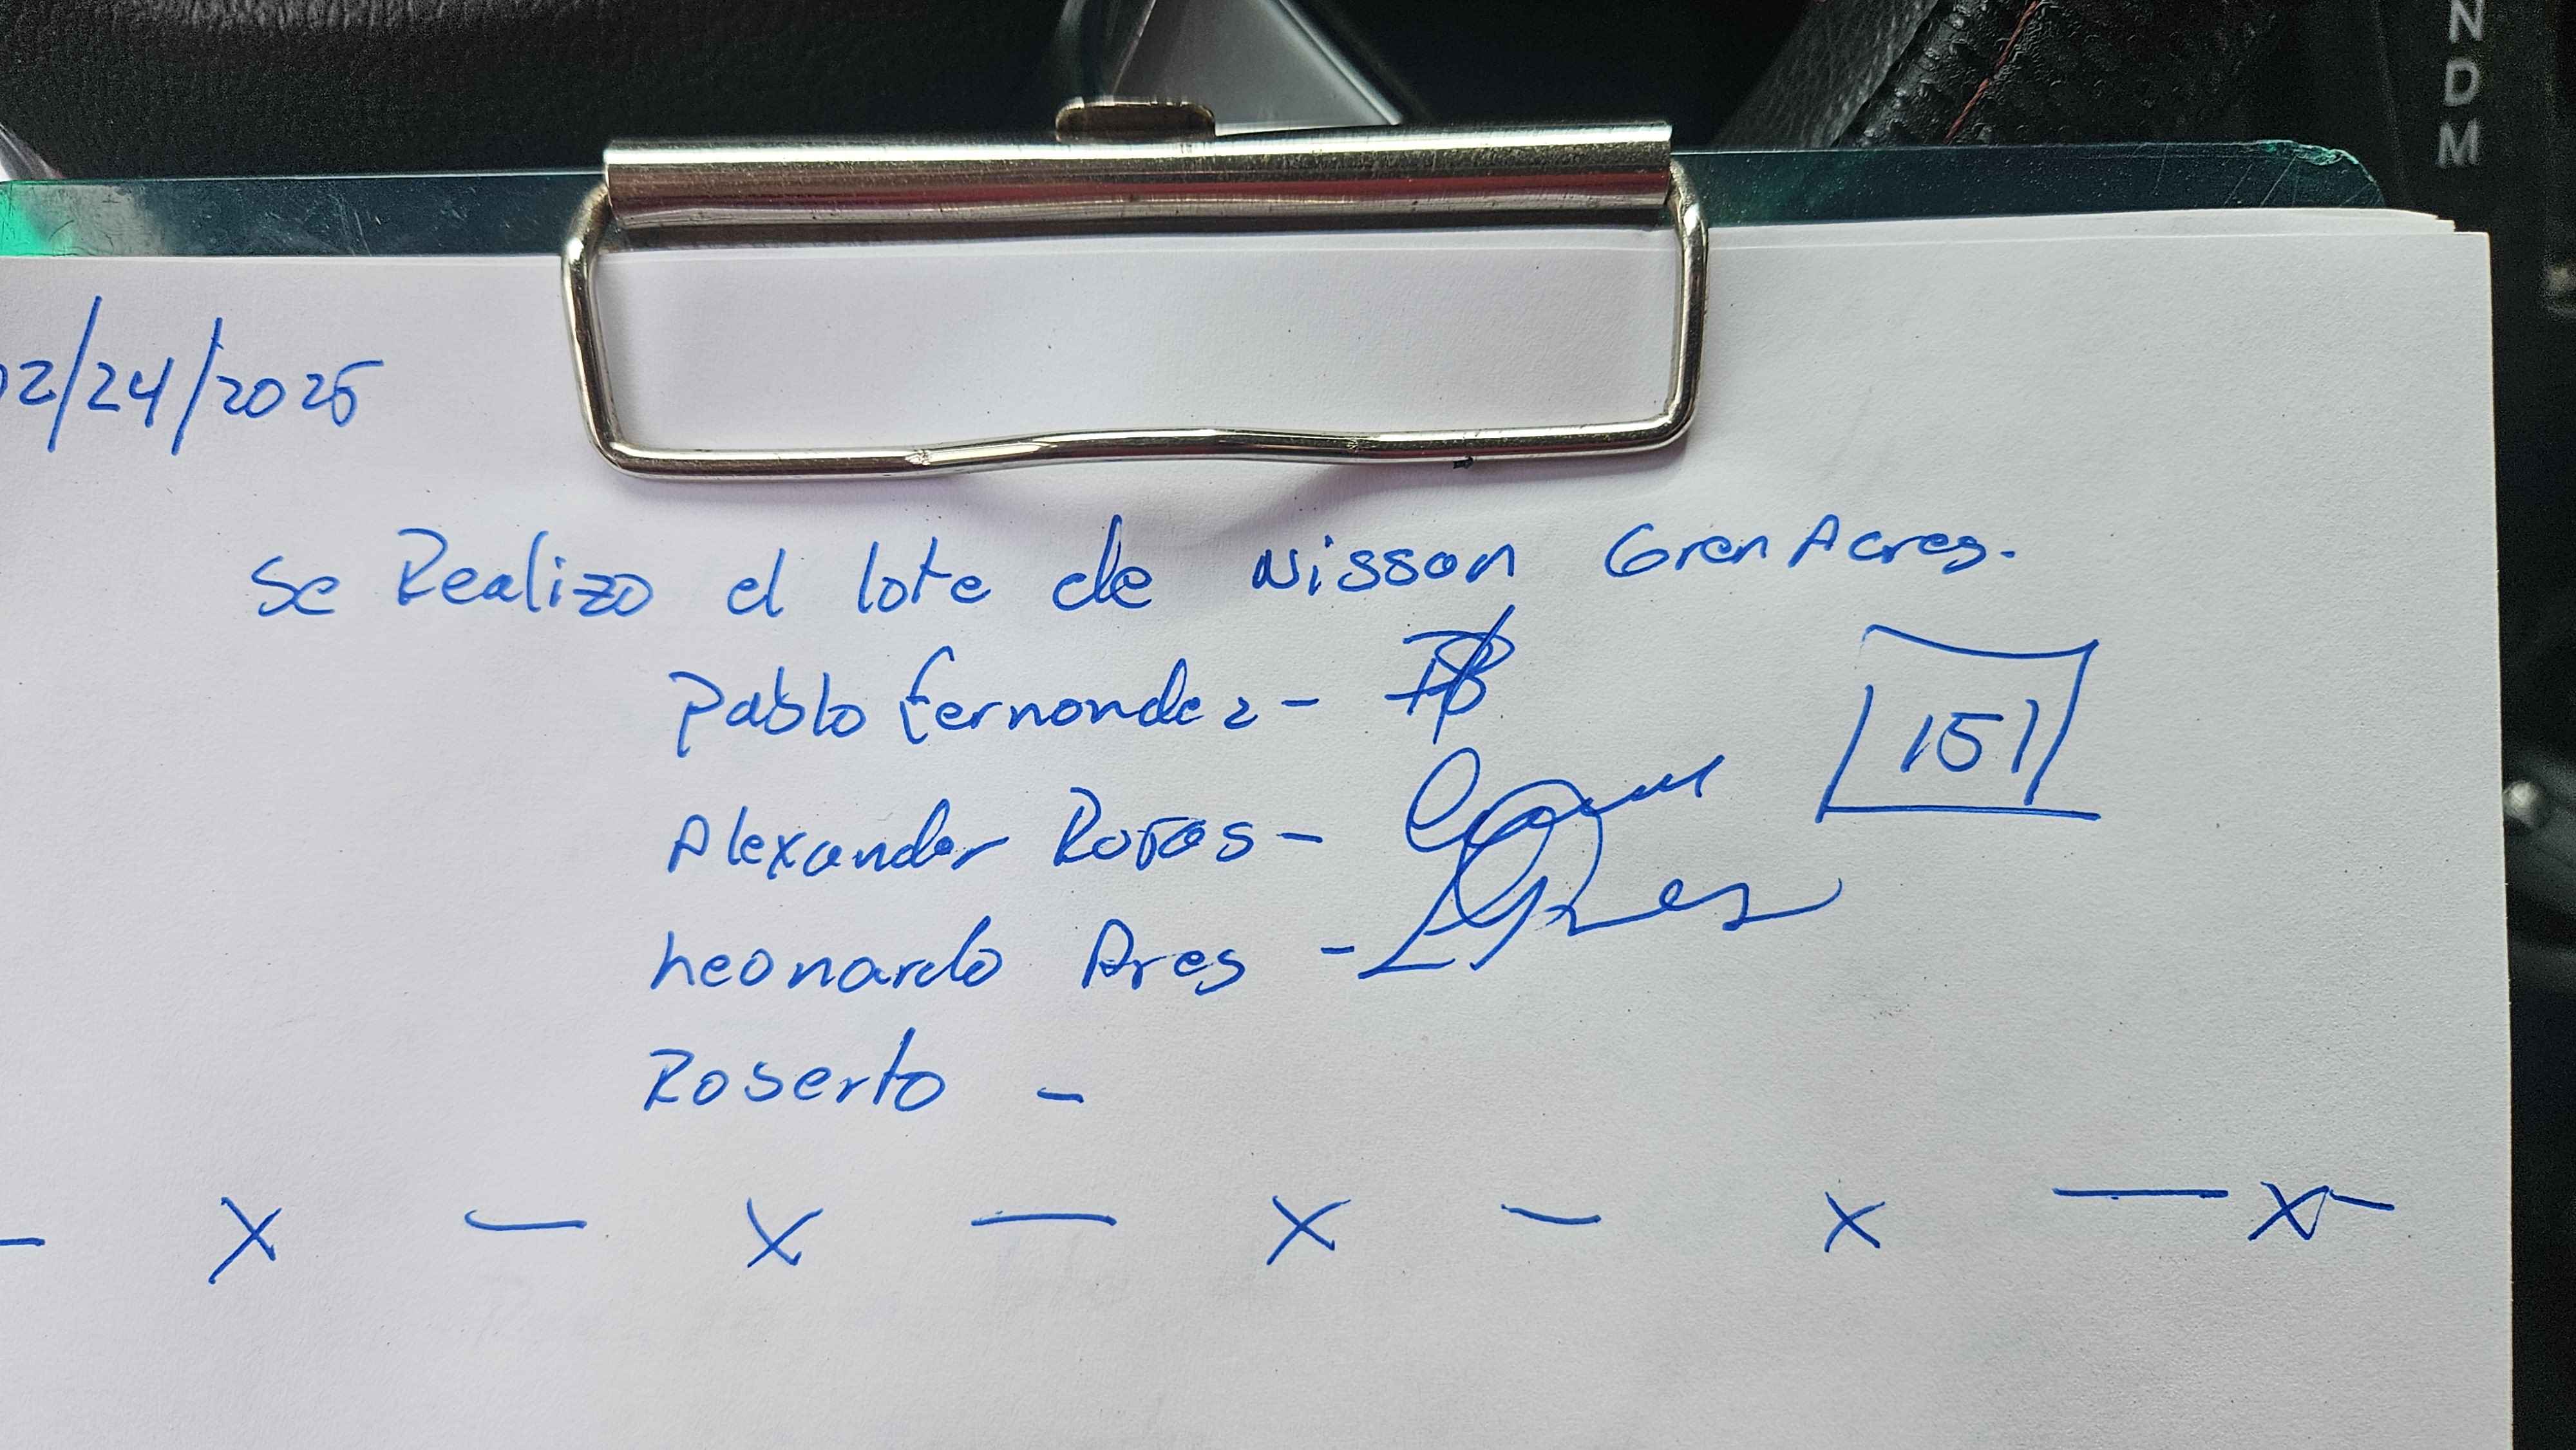 N
D
M
02/24/2025
Se Realizo el lote de Nissan Gren Acres.
Pablo Fernandez -
151
Alexander Rojas -
Leonardo Ares -
Roberto -
- X - X - X - X - X -